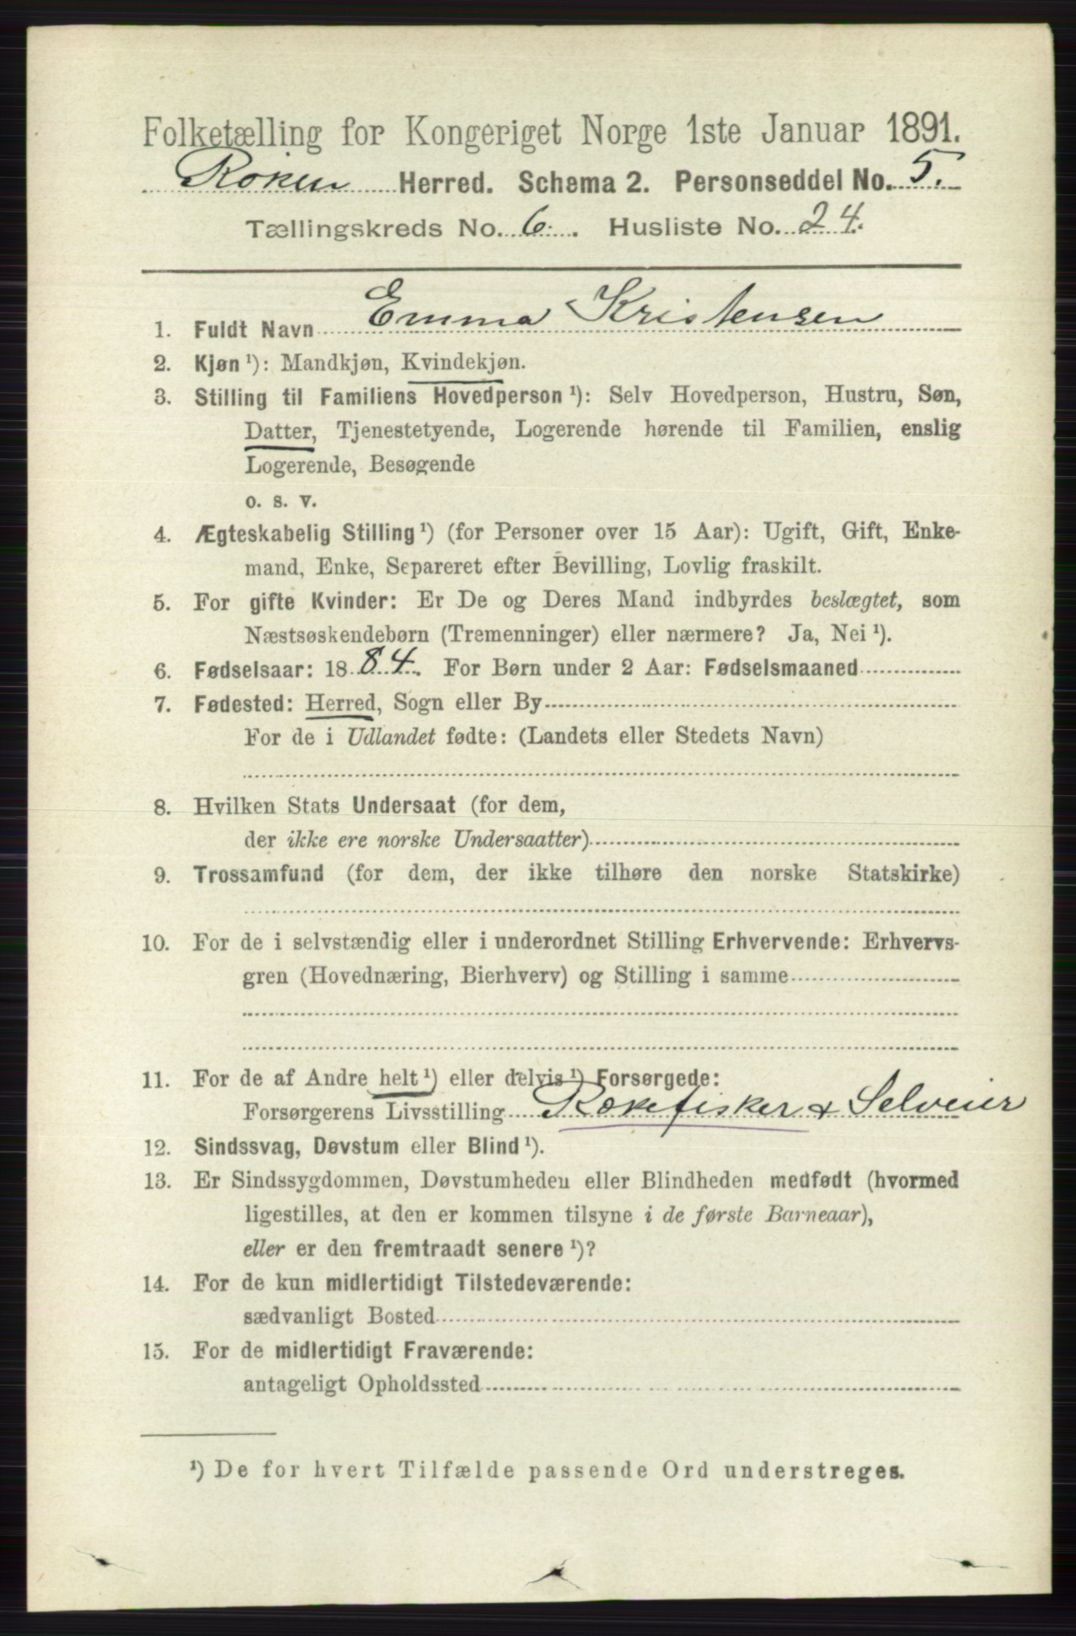 Folketælling for Kongeriget Norge 1ste Januar 1891.
Röken Herred. Schema 2. Personseddel No. 5.
Tællingskreds No. 6. Husliste No. 24.
1. Fuldt Navn Emma Kristensen
2. Kjøn ¹): Mandkjøn, Kvindekjøn.
3. Stilling til Familiens Hovedperson ¹): Selv Hovedperson, Hustru, Søn,
Datter, Tjenestetyende, Logerende hørende til Familien, enslig
Logerende, Besøgende
o. s. v.
4. Ægteskabelig Stilling ¹) (for Personer over 15 Aar): Ugift, Gift, Enke-
mand, Enke, Separeret efter Bevilling, Lovlig fraskilt.
5. For gifte Kvinder: Er De og Deres Mand indbyrdes beslægtet, som
Næstsøskendebørn (Tremenninger) eller nærmere? Ja, Nei ¹).
6. Fødselsaar: 1884. For Børn under 2 Aar: Fødselsmaaned
7. Fødested: Herred, Sogn eller By
For de i Udlandet fødte: (Landets eller Stedets Navn)
8. Hvilken Stats Undersaat (for dem,
der ikke ere norske Undersaatter)
9. Trossamfund (for dem, der ikke tilhøre den norske Statskirke)
10. For de i selvstændig eller i underordnet Stilling Erhvervende: Erhvervs-
gren (Hovednæring, Bierhverv) og Stilling i samme
11. For de af Andre helt ¹) eller delvis ¹) Forsørgede:
Forsørgerens Livsstilling Rækefisker & Selveier
12. Sindssvag, Døvstum eller Blind ¹).
13. Er Sindssygdommen, Døvstumheden eller Blindheden medfødt (hvormed
ligestilles, at den er kommen tilsyne i de første Barneaar),
eller er den fremtraadt senere ¹)?
14. For de kun midlertidigt Tilstedeværende:
sædvanligt Bosted
15. For de midlertidigt Fraværende:
antageligt Opholdssted
¹) De for hvert Tilfælde passende Ord understreges.